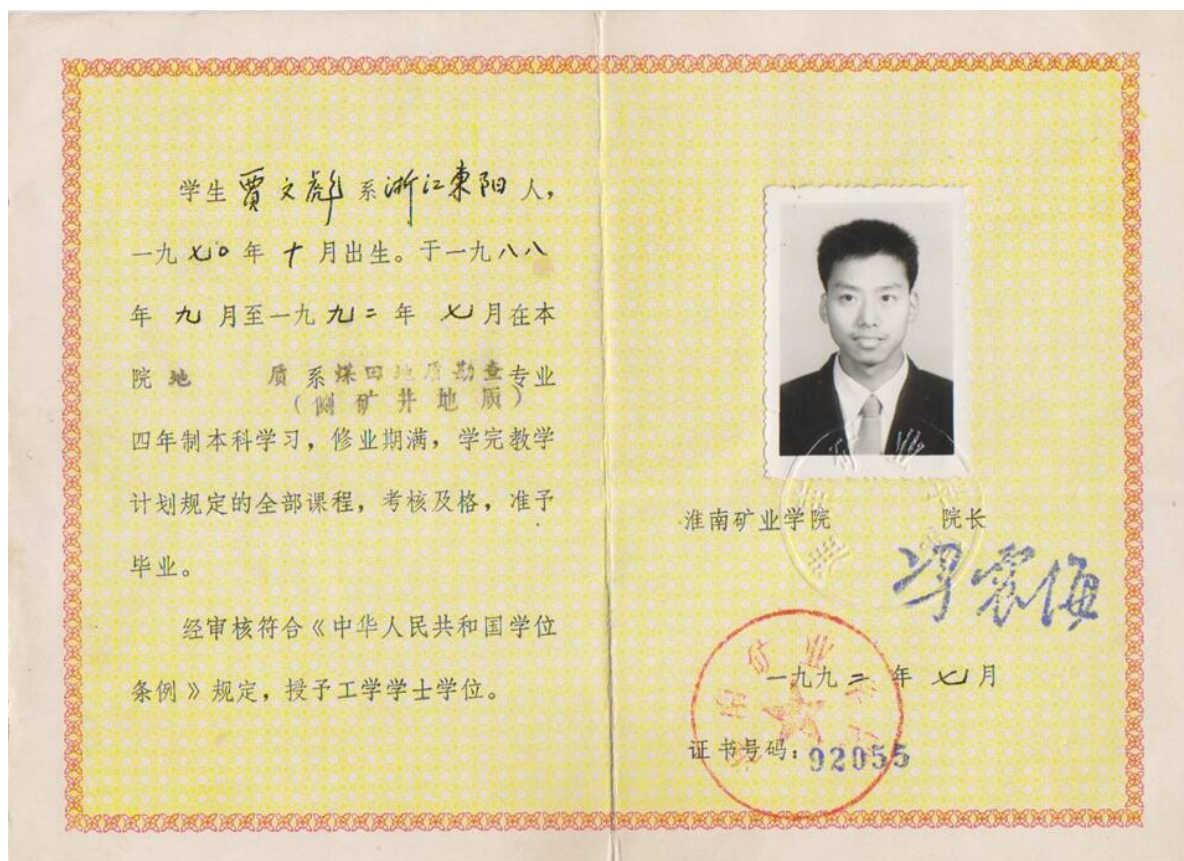 学生 賈文彪 系浙江東阳人，
一九七0年十月出生。于一九八八
年九月至一九九二年七月在本
院地 质系煤田地质勘查专业
（侧矿井地质）
四年制本科学习，修业期满，学完教学
计划规定的全部课程，考核及格，准予
毕业。
经审核符合《中华人民共和国学位
条例》规定，授予工学学士学位。
淮南矿业学院 院长
一九九二年七月
证书号码：92055
淮南矿业学院